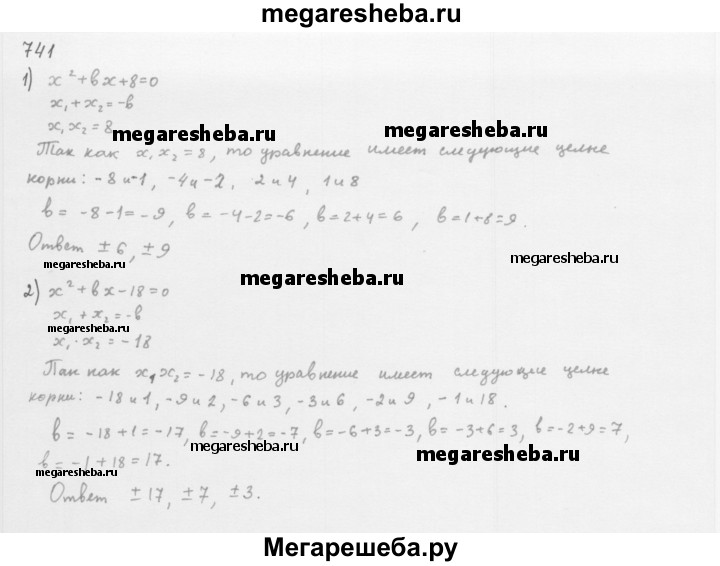 megaresheba.ru
741
1) x² + bx + 8 = 0
x₁ + x₂ = -b
x₁ x₂ = 8
megaresheba.ru
megaresheba.ru
Так как x₁ x₂ = 8, то уравнение имеет следующие целые
корни: -8 и -1, -4 и -2, 2 и 4, 1 и 8
b = -8-1 = -9, b = -4-2 = -6, b = 2+4 = 6, b = 1+8 = 9.
Ответ ± 6, ± 9
megaresheba.ru
megaresheba.ru
megaresheba.ru
2) x² + bx - 18 = 0
x₁ + x₂ = -b
megaresheba.ru
x₁ · x₂ = -18
Так как x₁ x₂ = -18, то уравнение имеет следующие целые
корни: -18 и 1, -9 и 2, -6 и 3, -3 и 6, -2 и 9, -1 и 18.
megaresheba.ru
b = -18+1 = -17, b = -9+2 = -7, b = -6+3 = -3, b = -3+6 = 3, b = -2+9 = 7,
megaresheba.ru
megaresheba.ru
b = -1 + 18 = 17.
megaresheba.ru
Ответ ± 17, ± 7, ± 3.
Мегарешеба.ру